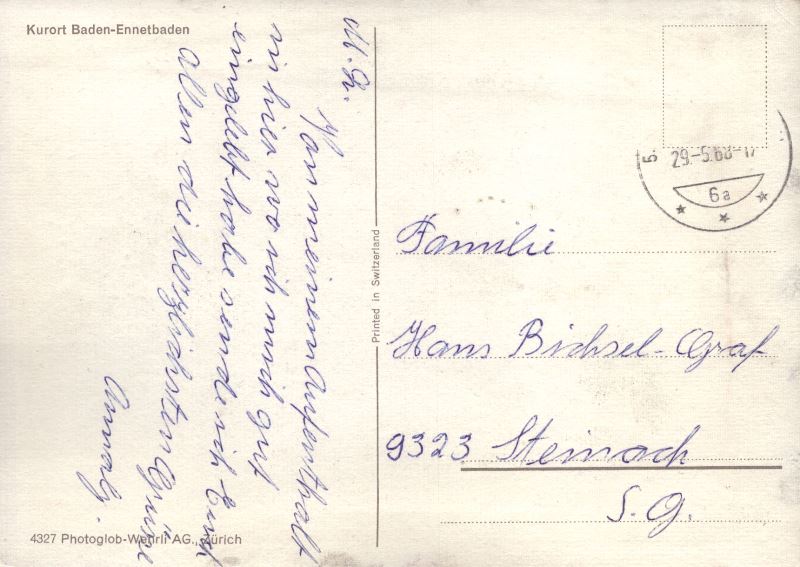 Kurort Baden-Ennetbaden
M. L.
Von meinem Aufenthalt
in hier wo ich mich gut
eingelebt habe sende ich Euch
allen die herzlichsten Grüsse
Printed in Switzerland
29.-5.68-17
6a
Familie
Hans Bichsel-Graf
9323 Steinach
S. G.
4327 Photoglob-Wehrli AG., Zürich